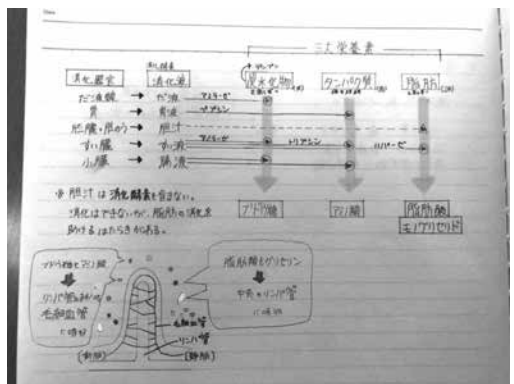 三大栄養素
消化器官 消化液 炭水化物 タンパク質 脂肪
だ液腺 → だ液 アミラーゼ
胃 → 胃液 ペプシン
胆臓・胆のう → 胆汁
すい臓 → すい液 アミラーゼ トリプシン リパーゼ
小腸 → 腸液
※ 胆汁は消化酵素を含まない。
消化はできないが、脂肪の消化を
助けるはたらきがある。
ブドウ糖 アミノ酸 脂肪酸
モノグリセリド
ブドウ糖とアミノ酸
毛細血管
に吸収
脂肪酸とグリセリン
リンパ管
に吸収
毛細血管
リンパ管
[動脈] [静脈]